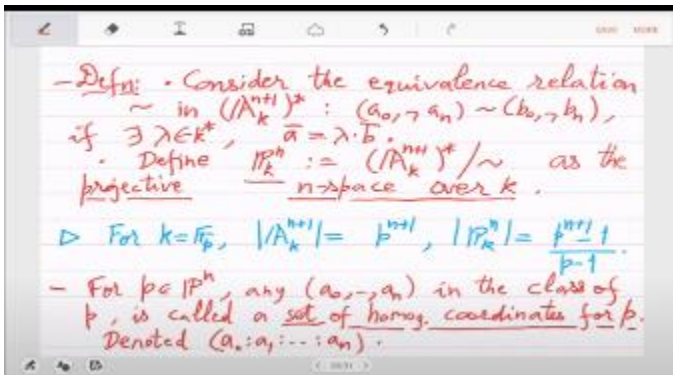 SAVE MORE
- Defn: · Consider the equivalence relation
~ in (𝔸ₖⁿ⁺¹)* : (a₀,⁊ aₙ) ~ (b₀,⁊ bₙ),
if ∃ λ∈k*, a̅ = λ·b̅.
· Define ℙₖⁿ := (𝔸ₖⁿ⁺¹)*/~ as the
projective n-space over k.
▷ For k=𝔽ₚ, |𝔸ₖⁿ⁺¹| = pⁿ⁺¹, |ℙₖⁿ| = (pⁿ⁺¹-1)/(p-1).
- For p∈ℙⁿ, any (a₀,-,aₙ) in the class of
p, is called a set of homog. coordinates for p.
Denoted (a₀:a₁:--:aₙ).